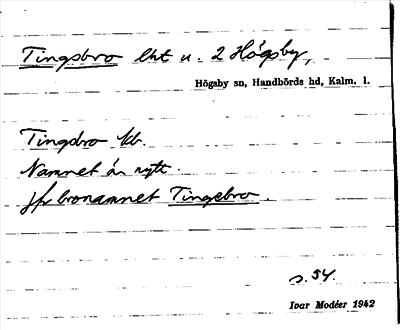 Tingsbro lht u. 2 Högsby,
Högsby sn, Handbörds hd, Kalm. l.
Tingsbro kb.
Namnet är nytt.
jfr bronamnet Tingsbro.
s. 54.
Ivar Modéer 1942